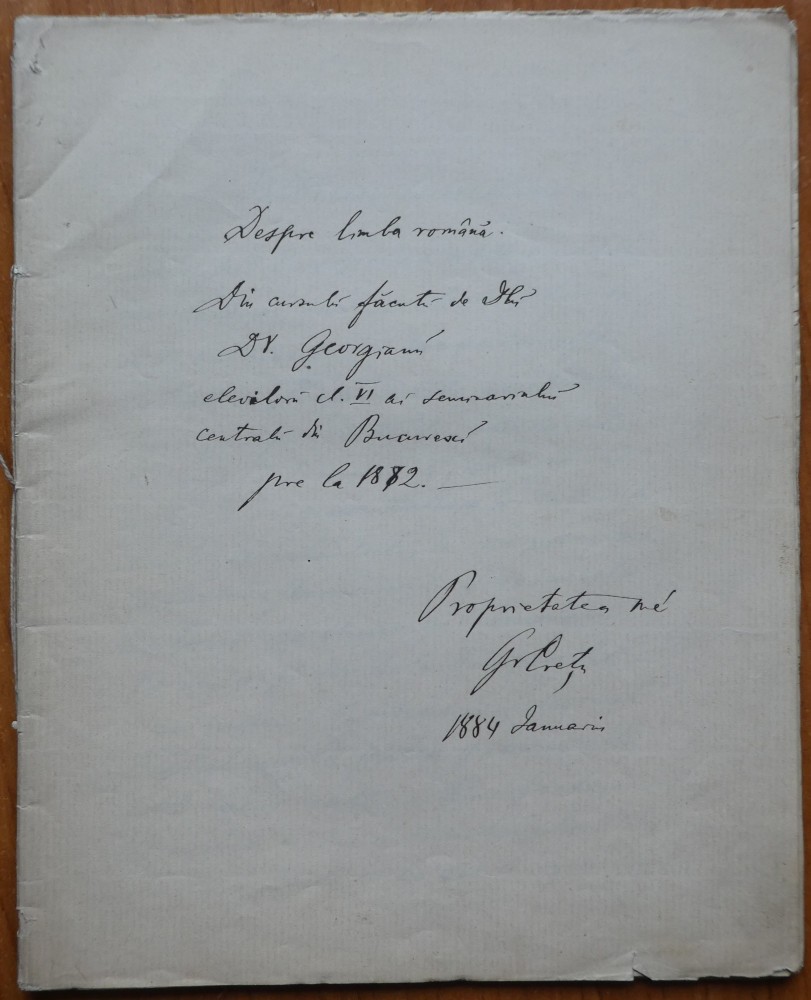 Despre limba română.
Din cursulŭ făcutŭ de Dlŭ
Dr. Georgianŭ
elevilorŭ cl. VI ai seminariuluĭ
centralŭ din Bucurescĭ
pre la 1872. —
Proprietatea mé
Gr Crețu
1884 Ianuariu